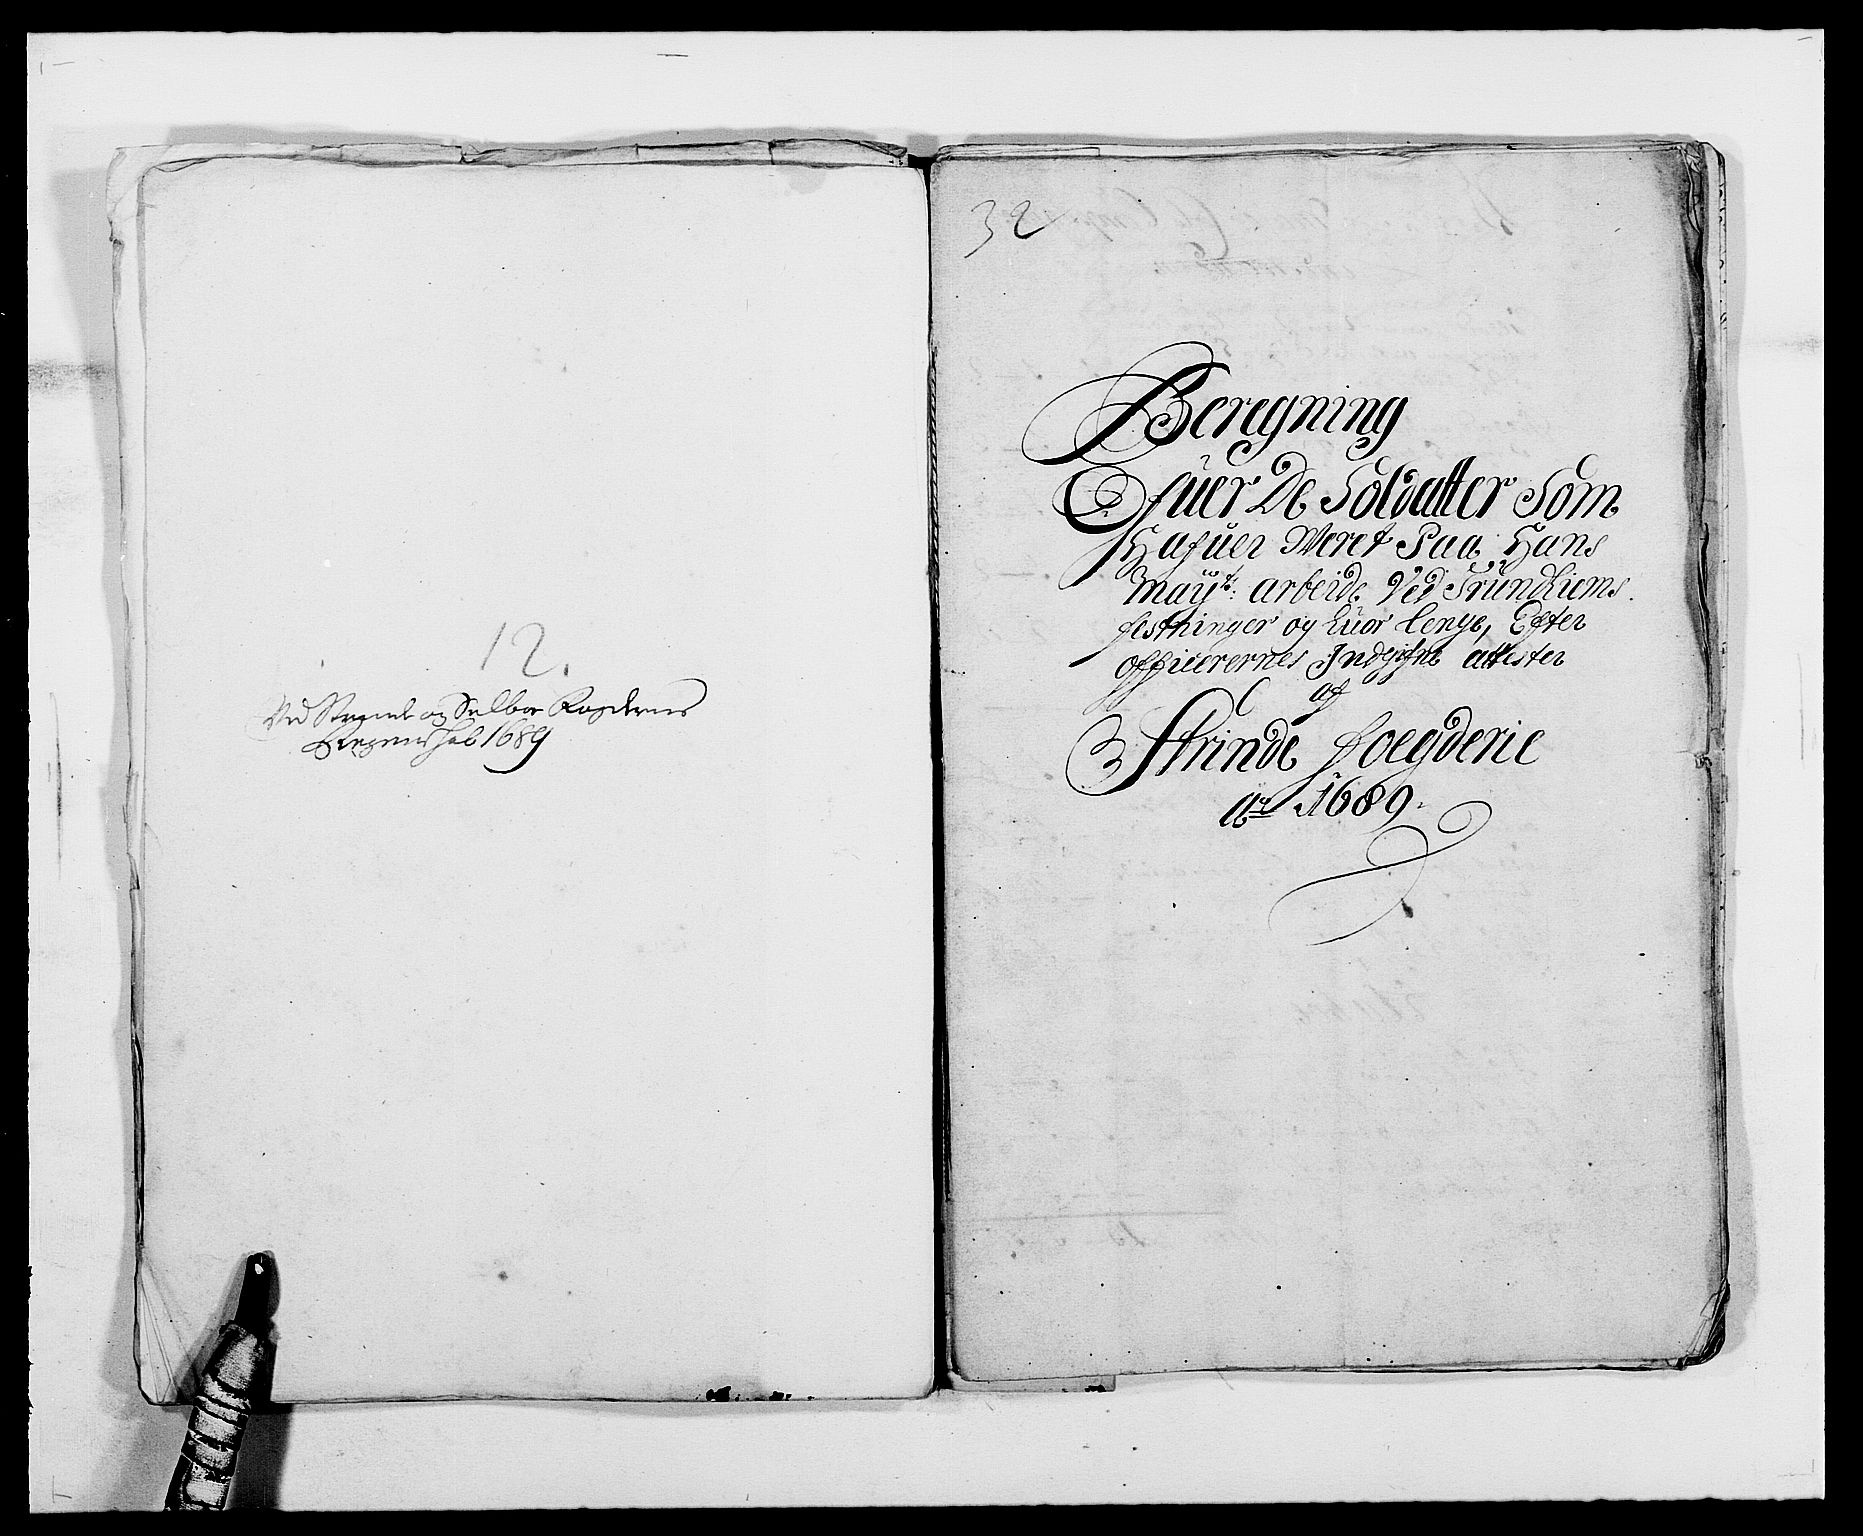 12.
Ved Strinde og Selboe Fogderies
Regenskab 1689
32
Beregning
Ofuer De Soldatter Som
Hafuer Weret Paa Hans
Mayts: arbeide Ved Trundhiems
festninger og huor lenge, Efter
officerernes Indgifne attester
af
Strinde foegderie
Ao 1689.